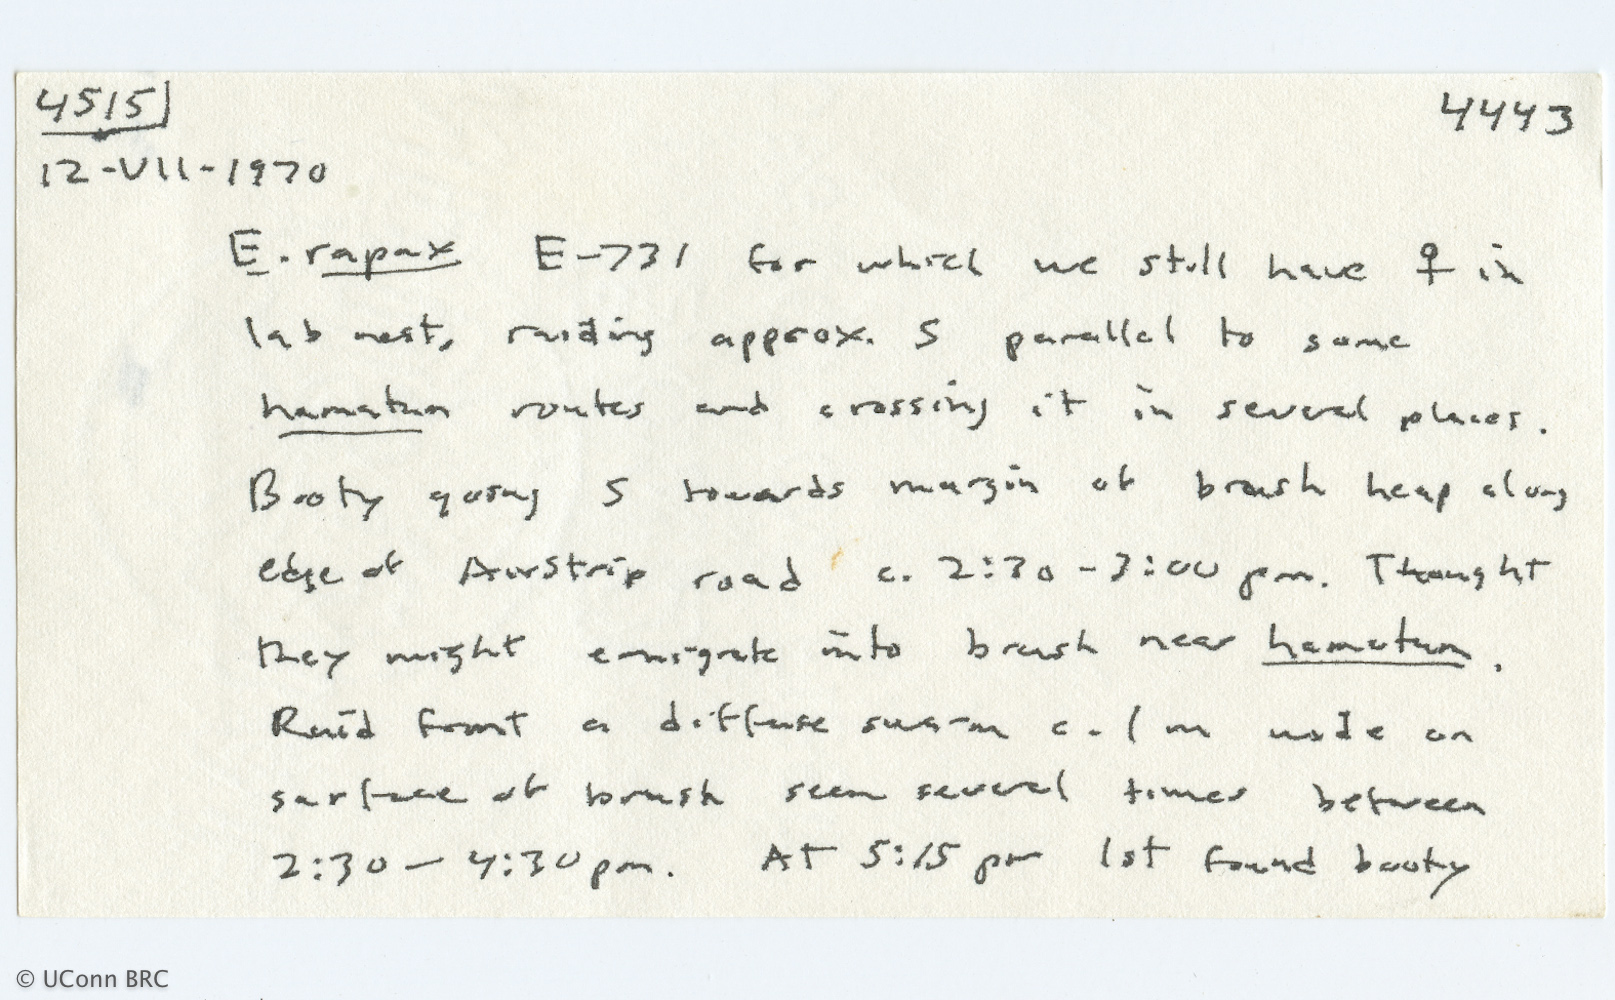 4515 4443
12-VII-1970
E. rapax E-731 for which we still have ♀ in
lab nest, raiding approx. S parallel to some
hamatum routes and crossing it in several places.
Booty going S towards margin of brush heap along
edge of Airstrip road c. 2:30-3:00 pm. Thought
they might emigrate into brush near hamatum.
Raid front a diffuse swarm c. 1 m wide on
surface of brush seen several times between
2:30-4:30 pm. At 5:15 pm 1st found booty
© UConn BRC